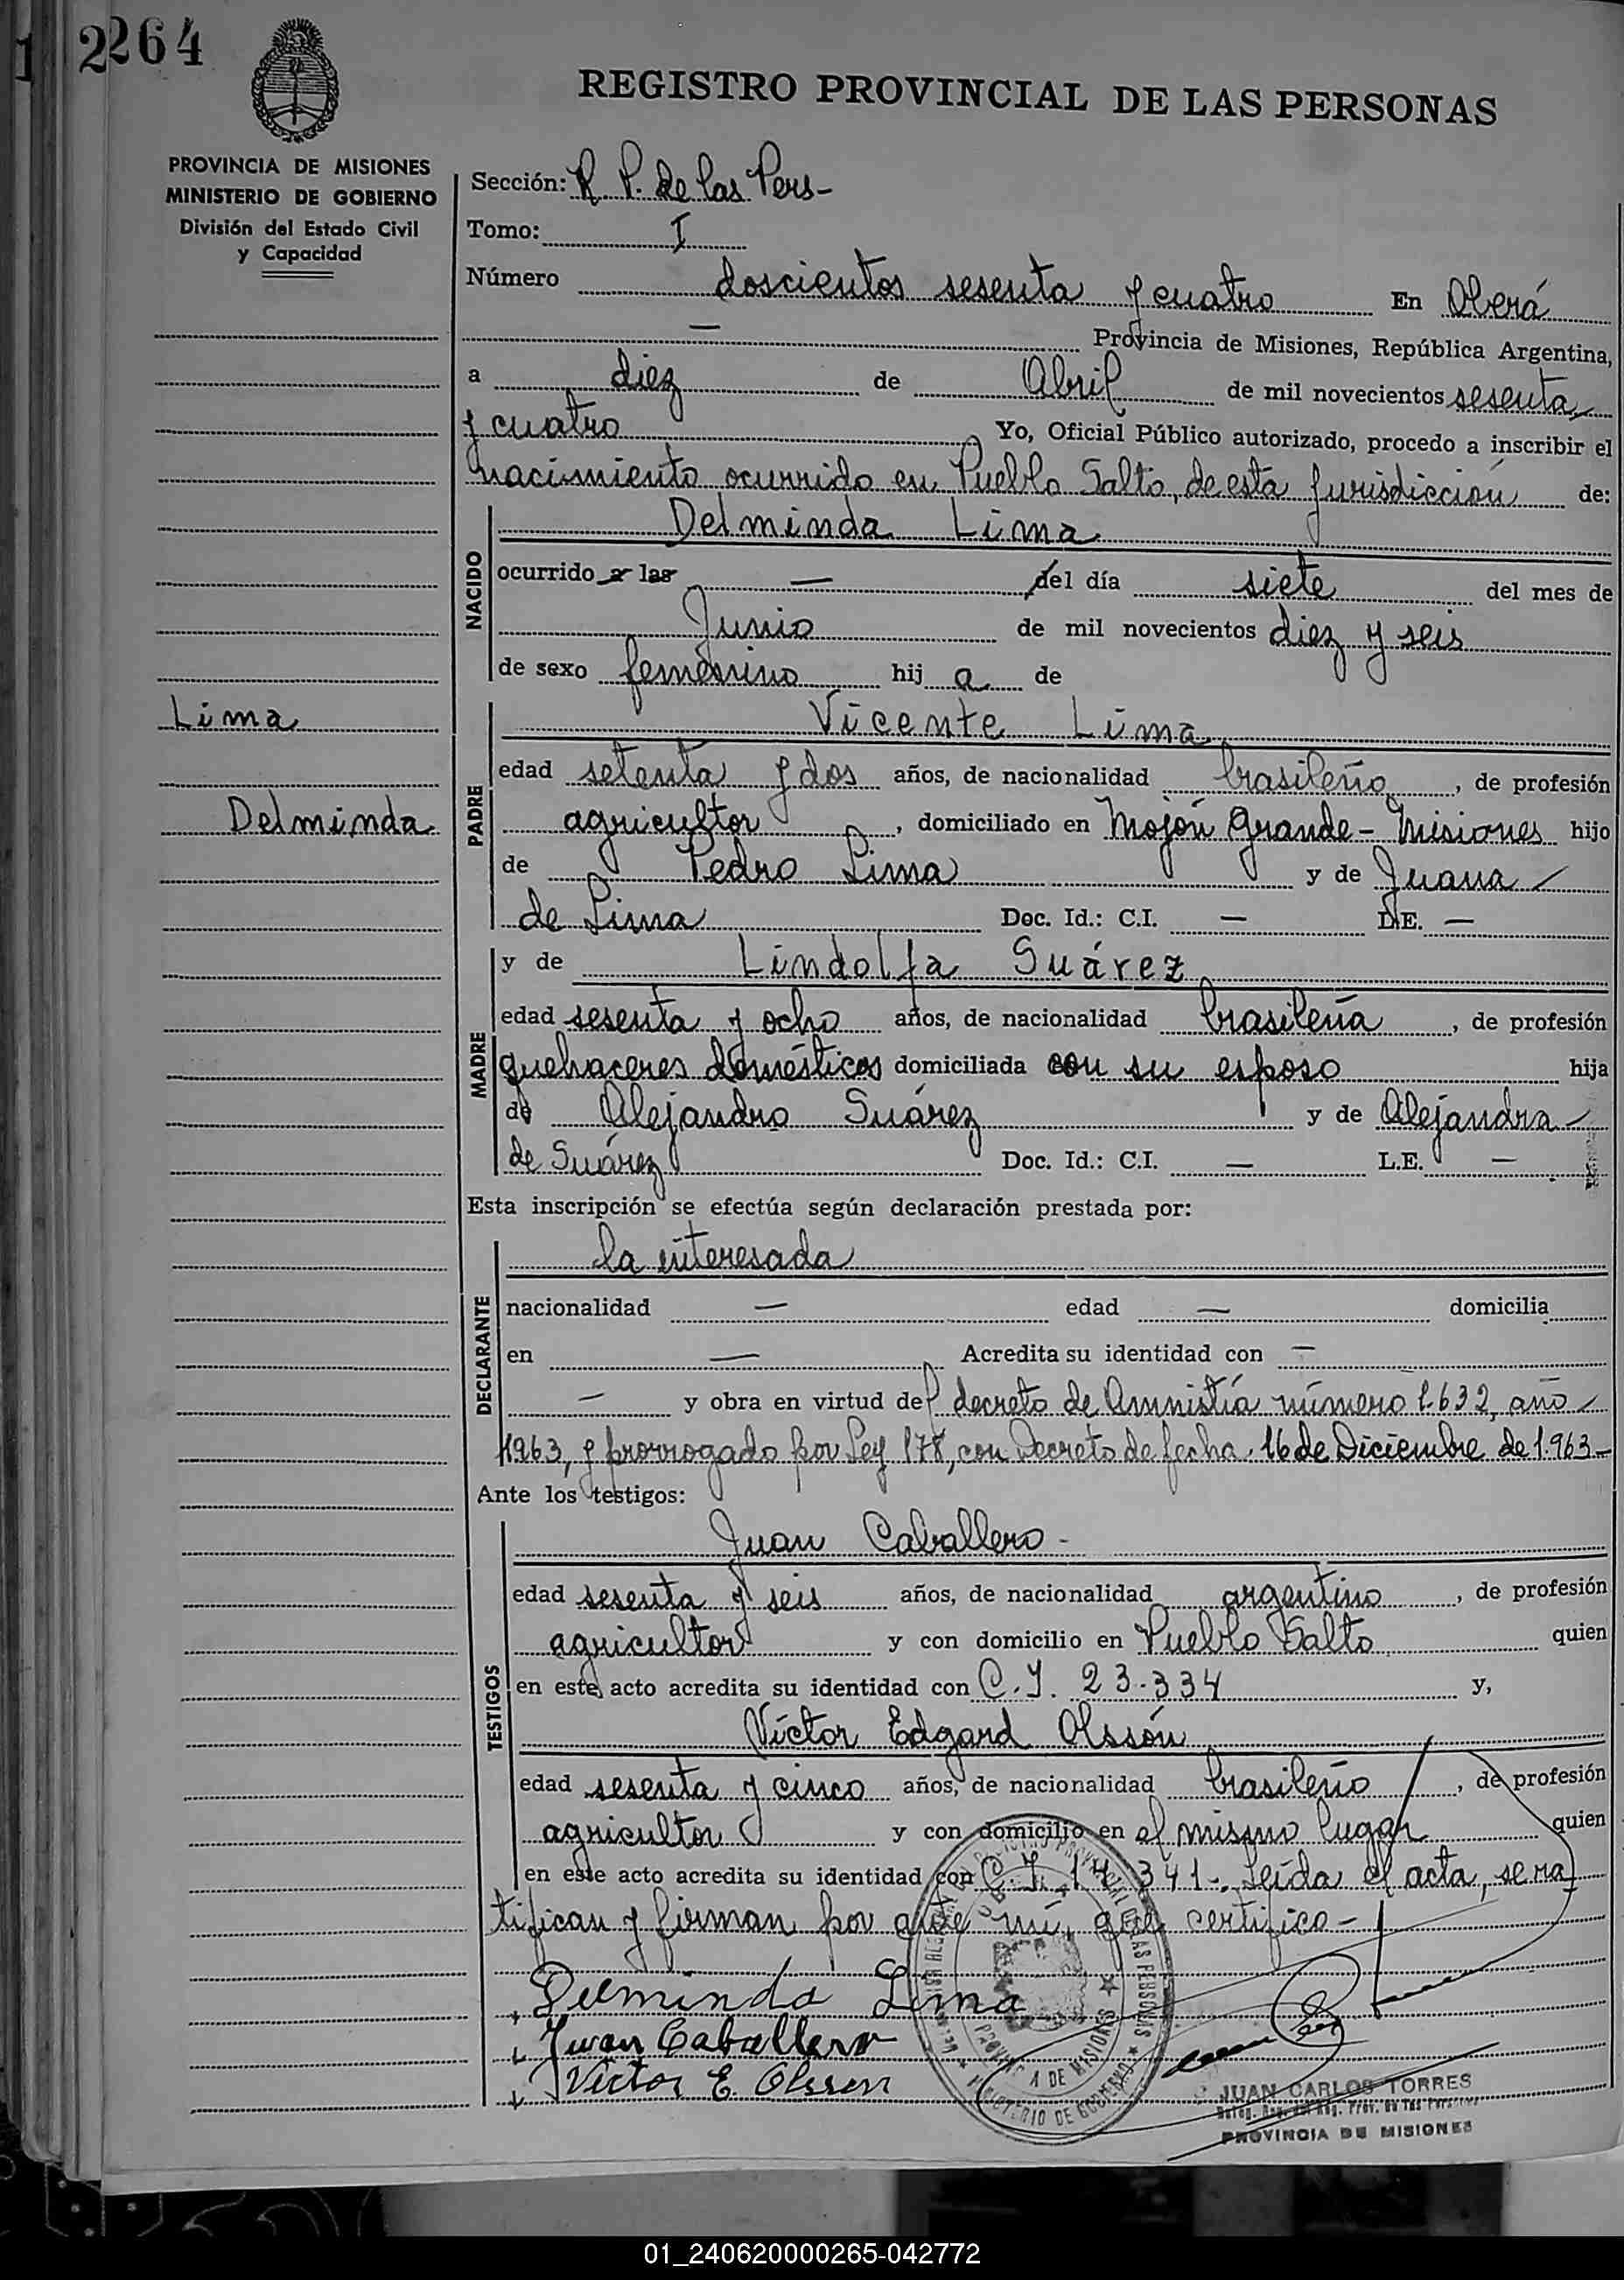 2264
REGISTRO PROVINCIAL DE LAS PERSONAS
PROVINCIA DE MISIONES
MINISTERIO DE GOBIERNO
División del Estado Civil
y Capacidad
Sección: R. P. de las Pers-
Tomo: I
Número doscientos sesenta y cuatro En Oberá
— Provincia de Misiones, República Argentina,
a diez de Abril de mil novecientos sesenta
y cuatro Yo, Oficial Público autorizado, procedo a inscribir el
nacimiento ocurrido en Pueblo Salto, de esta jurisdicción de:
NACIDO
Delminda Lima
ocurrido a las — del día siete del mes de
Junio de mil novecientos diez y seis
de sexo femenino hij a de
Lima
Delminda
PADRE
Vicente Lima
edad setenta y dos años, de nacionalidad brasileño, de profesión
agricultor, domiciliado en Mojón Grande - Misiones hijo
de Pedro Lima y de Juana
de Lima Doc. Id.: C.I. — L.E. —
MADRE
y de Lindolfa Suárez
edad sesenta y ocho años, de nacionalidad brasileña, de profesión
quehaceres domésticos domiciliada con su esposo hija
de Alejandro Suárez y de Alejandra
de Suárez Doc. Id.: C.I. — L.E. —
Esta inscripción se efectúa según declaración prestada por:
DECLARANTE
la interesada
nacionalidad — edad — domicilia
en — Acredita su identidad con —
— y obra en virtud del decreto de Amnistía número 1.632, año
1963, y prorrogado por Ley 178, con Decreto de fecha 16 de Diciembre de 1.963-
Ante los testigos:
TESTIGOS
Juan Caballero -
edad sesenta y seis años, de nacionalidad argentino, de profesión
agricultor y con domicilio en Pueblo Salto quien
en este acto acredita su identidad con C.I. 23.334 y,
Víctor Edgard Olssón
edad sesenta y cinco años, de nacionalidad brasileño, de profesión
agricultor y con domicilio en el mismo lugar quien
en este acto acredita su identidad con C.I. 341-. Leída el acta, se ra
tifican y firman por ante mí, que certifico-
Delminda Lima
Juan Caballero
Victor E. Olssen
JUAN CARLOS TORRES
PROVINCIA DE MISIONES
01_240620000265-042772